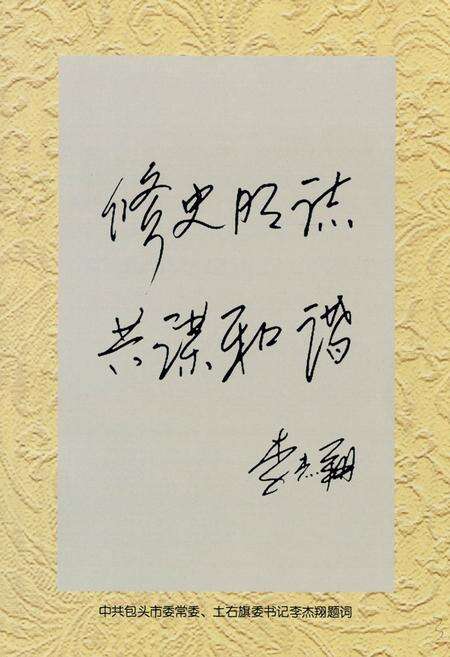 修史明誌
共謀和谐
李杰翔
中共包头市委常委、土右旗委书记李杰翔题词